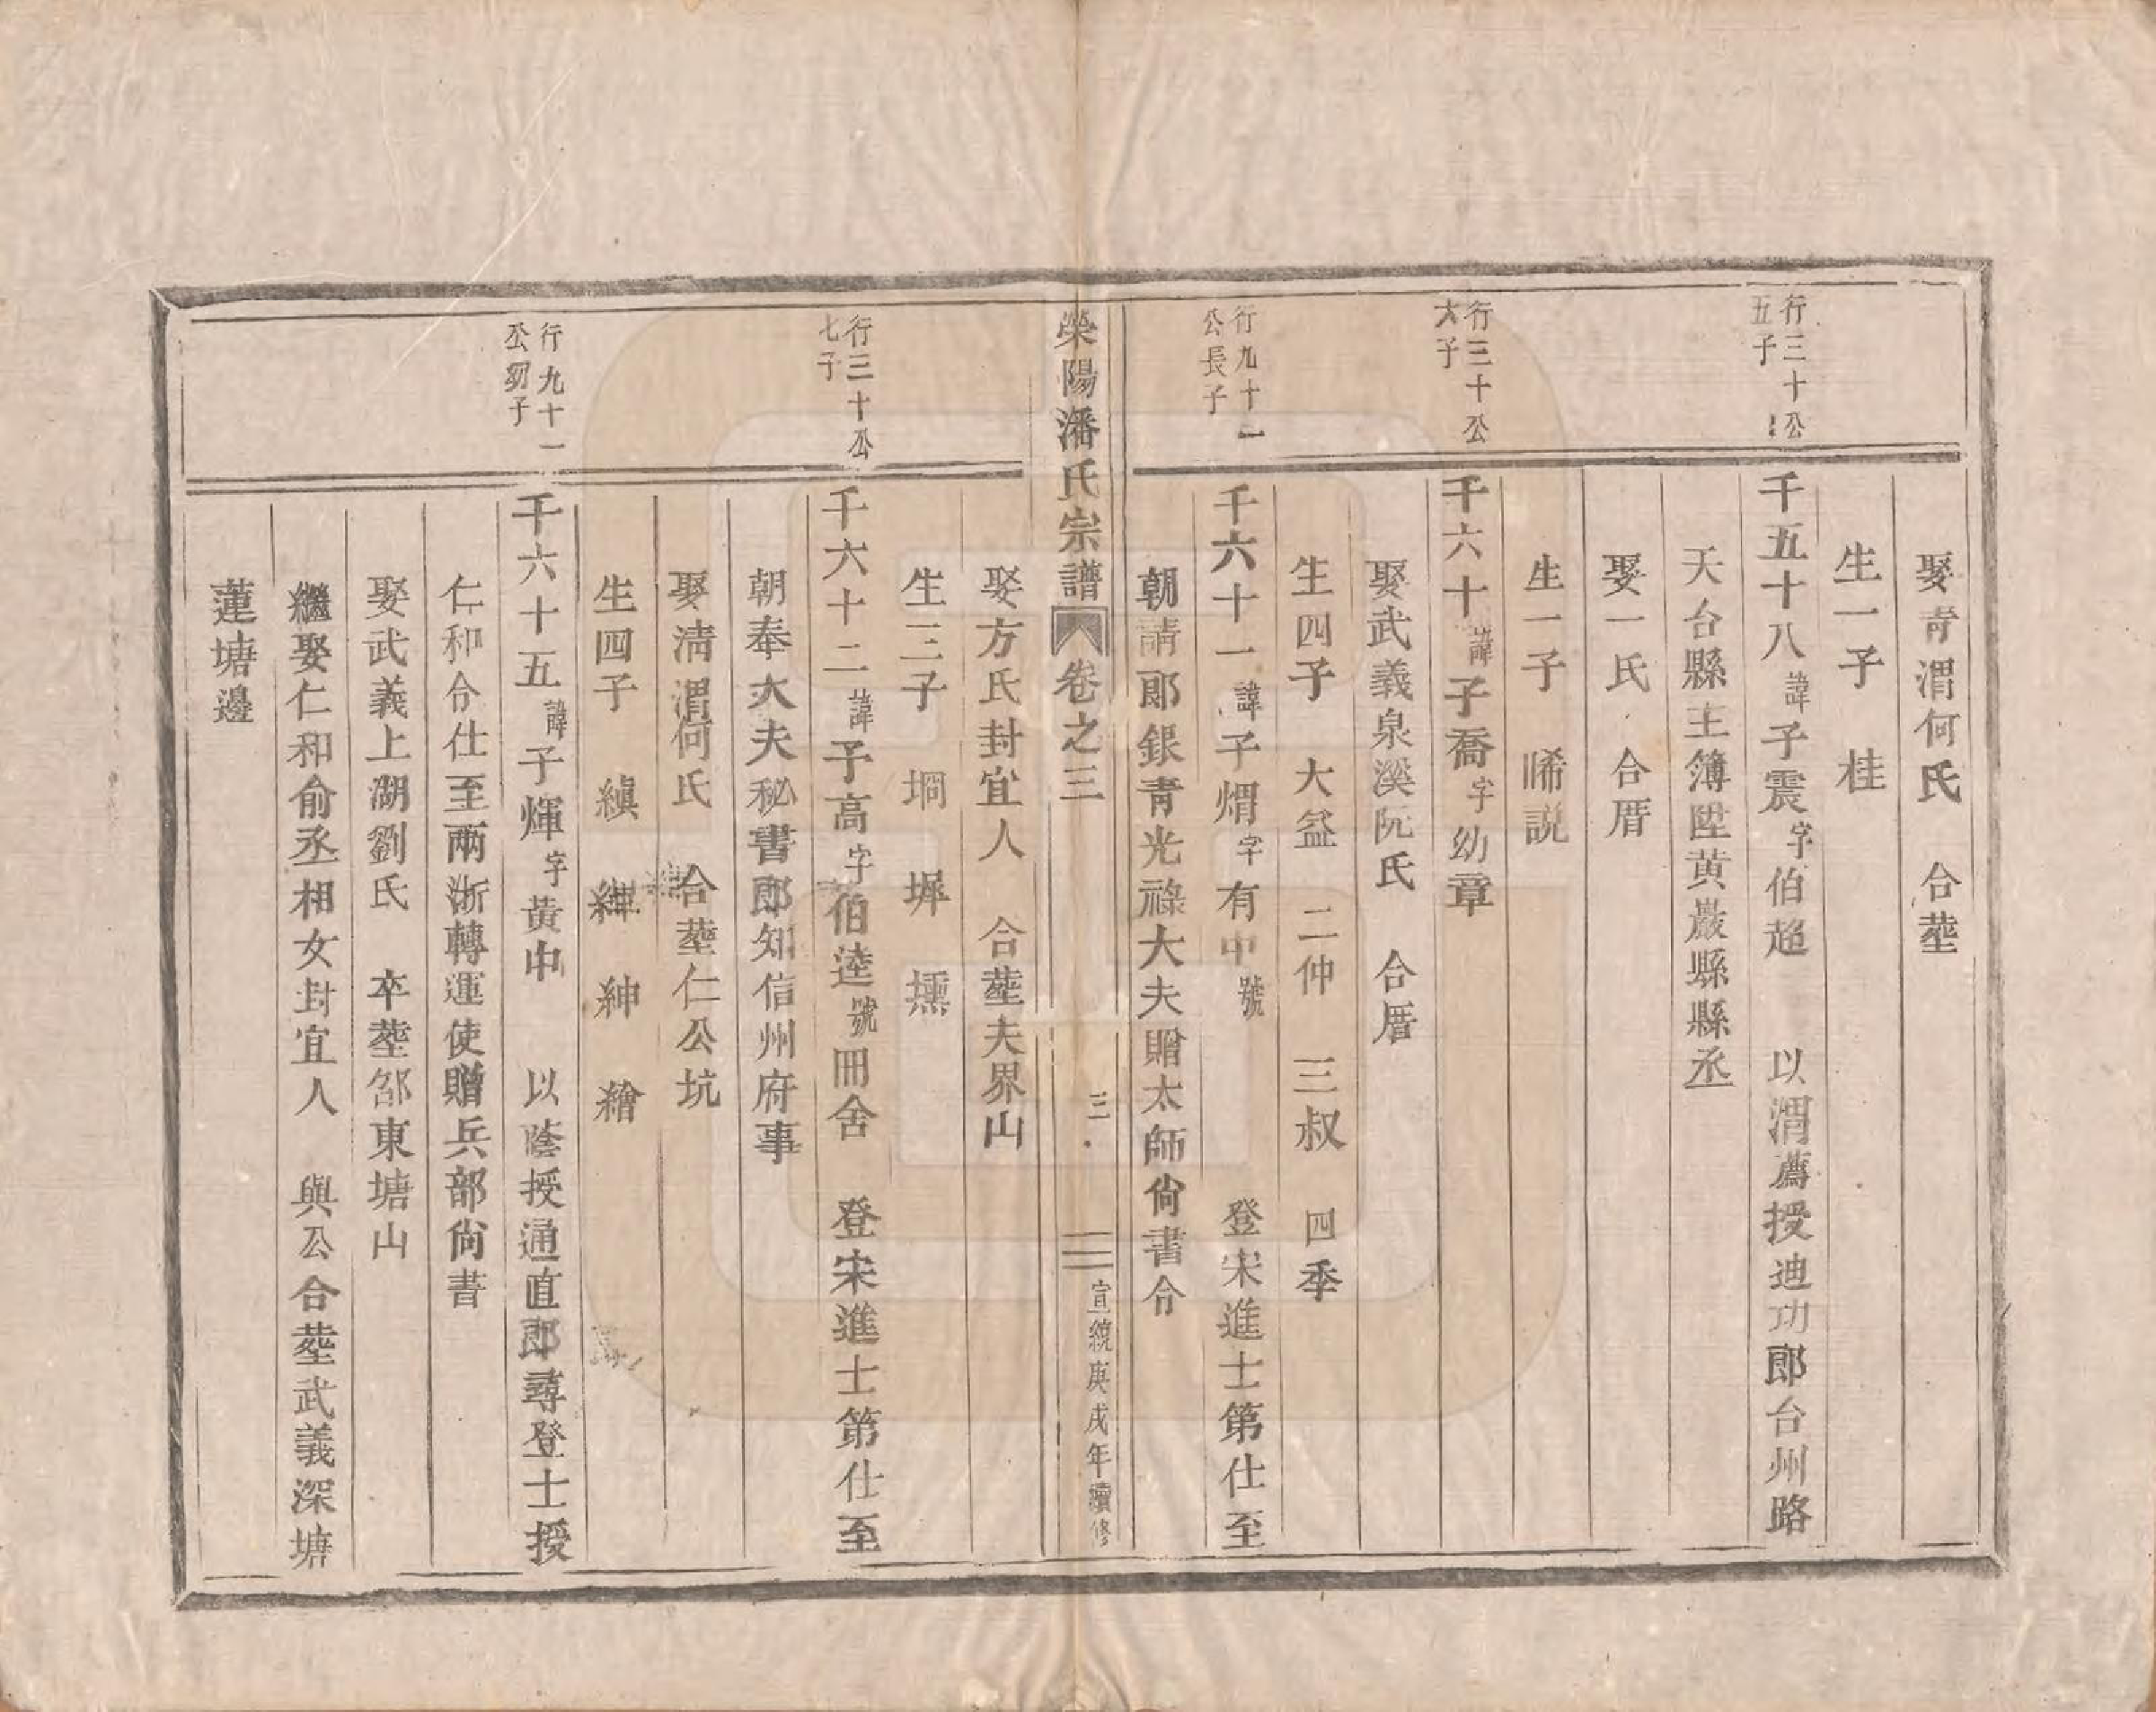 娶青渭何氏　合塟
生一子　桂
行三十公五子
千五十八諱子震字伯超　以渭薦授迪功郎台州路
天台縣主簿陞黄巖縣縣丞
娶一氏　合厝
生一子　晞説
行三十公六子
千六十諱子喬字幼章
娶武義泉溪阮氏　合厝
生四子　大益　二仲　三叔　四季
行九十一公長子
千六十一諱子熠字有中號　登宋進士第仕至
朝請郎銀青光祿大夫贈太師尙書令
滎陽潘氏宗譜　卷之三　三　宣統庚戌年續修
娶方氏封宜人　合塟夫界山
生三子　坰　墀　壎
行三十公七子
千六十二諱子高字伯逵號冊舍　登宋進士第仕至
朝奉大夫秘書郎知信州府事
娶淸渭何氏　合塟仁公坑
生四子　縝　縪　紳　繪
行九十一公初子
千六十五諱子煇字黃中　以蔭授通直郎尋登士授
仁和令仕至兩浙轉運使贈兵部尙書
娶武義上湖劉氏　卒塟郃東塘山
繼娶仁和俞丞相女封宜人　與公合塟武義深塘
蓮塘邊